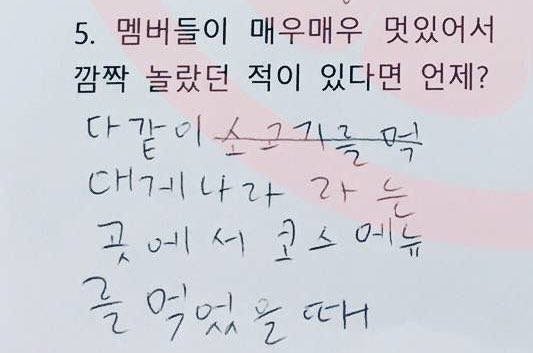 5. 멤버들이 매우매우 멋있어서
깜짝 놀랐던 적이 있다면 언제?
다같이 소고기를 먹
대게나라 라는
곳에서 코스메뉴
를 먹었을 때